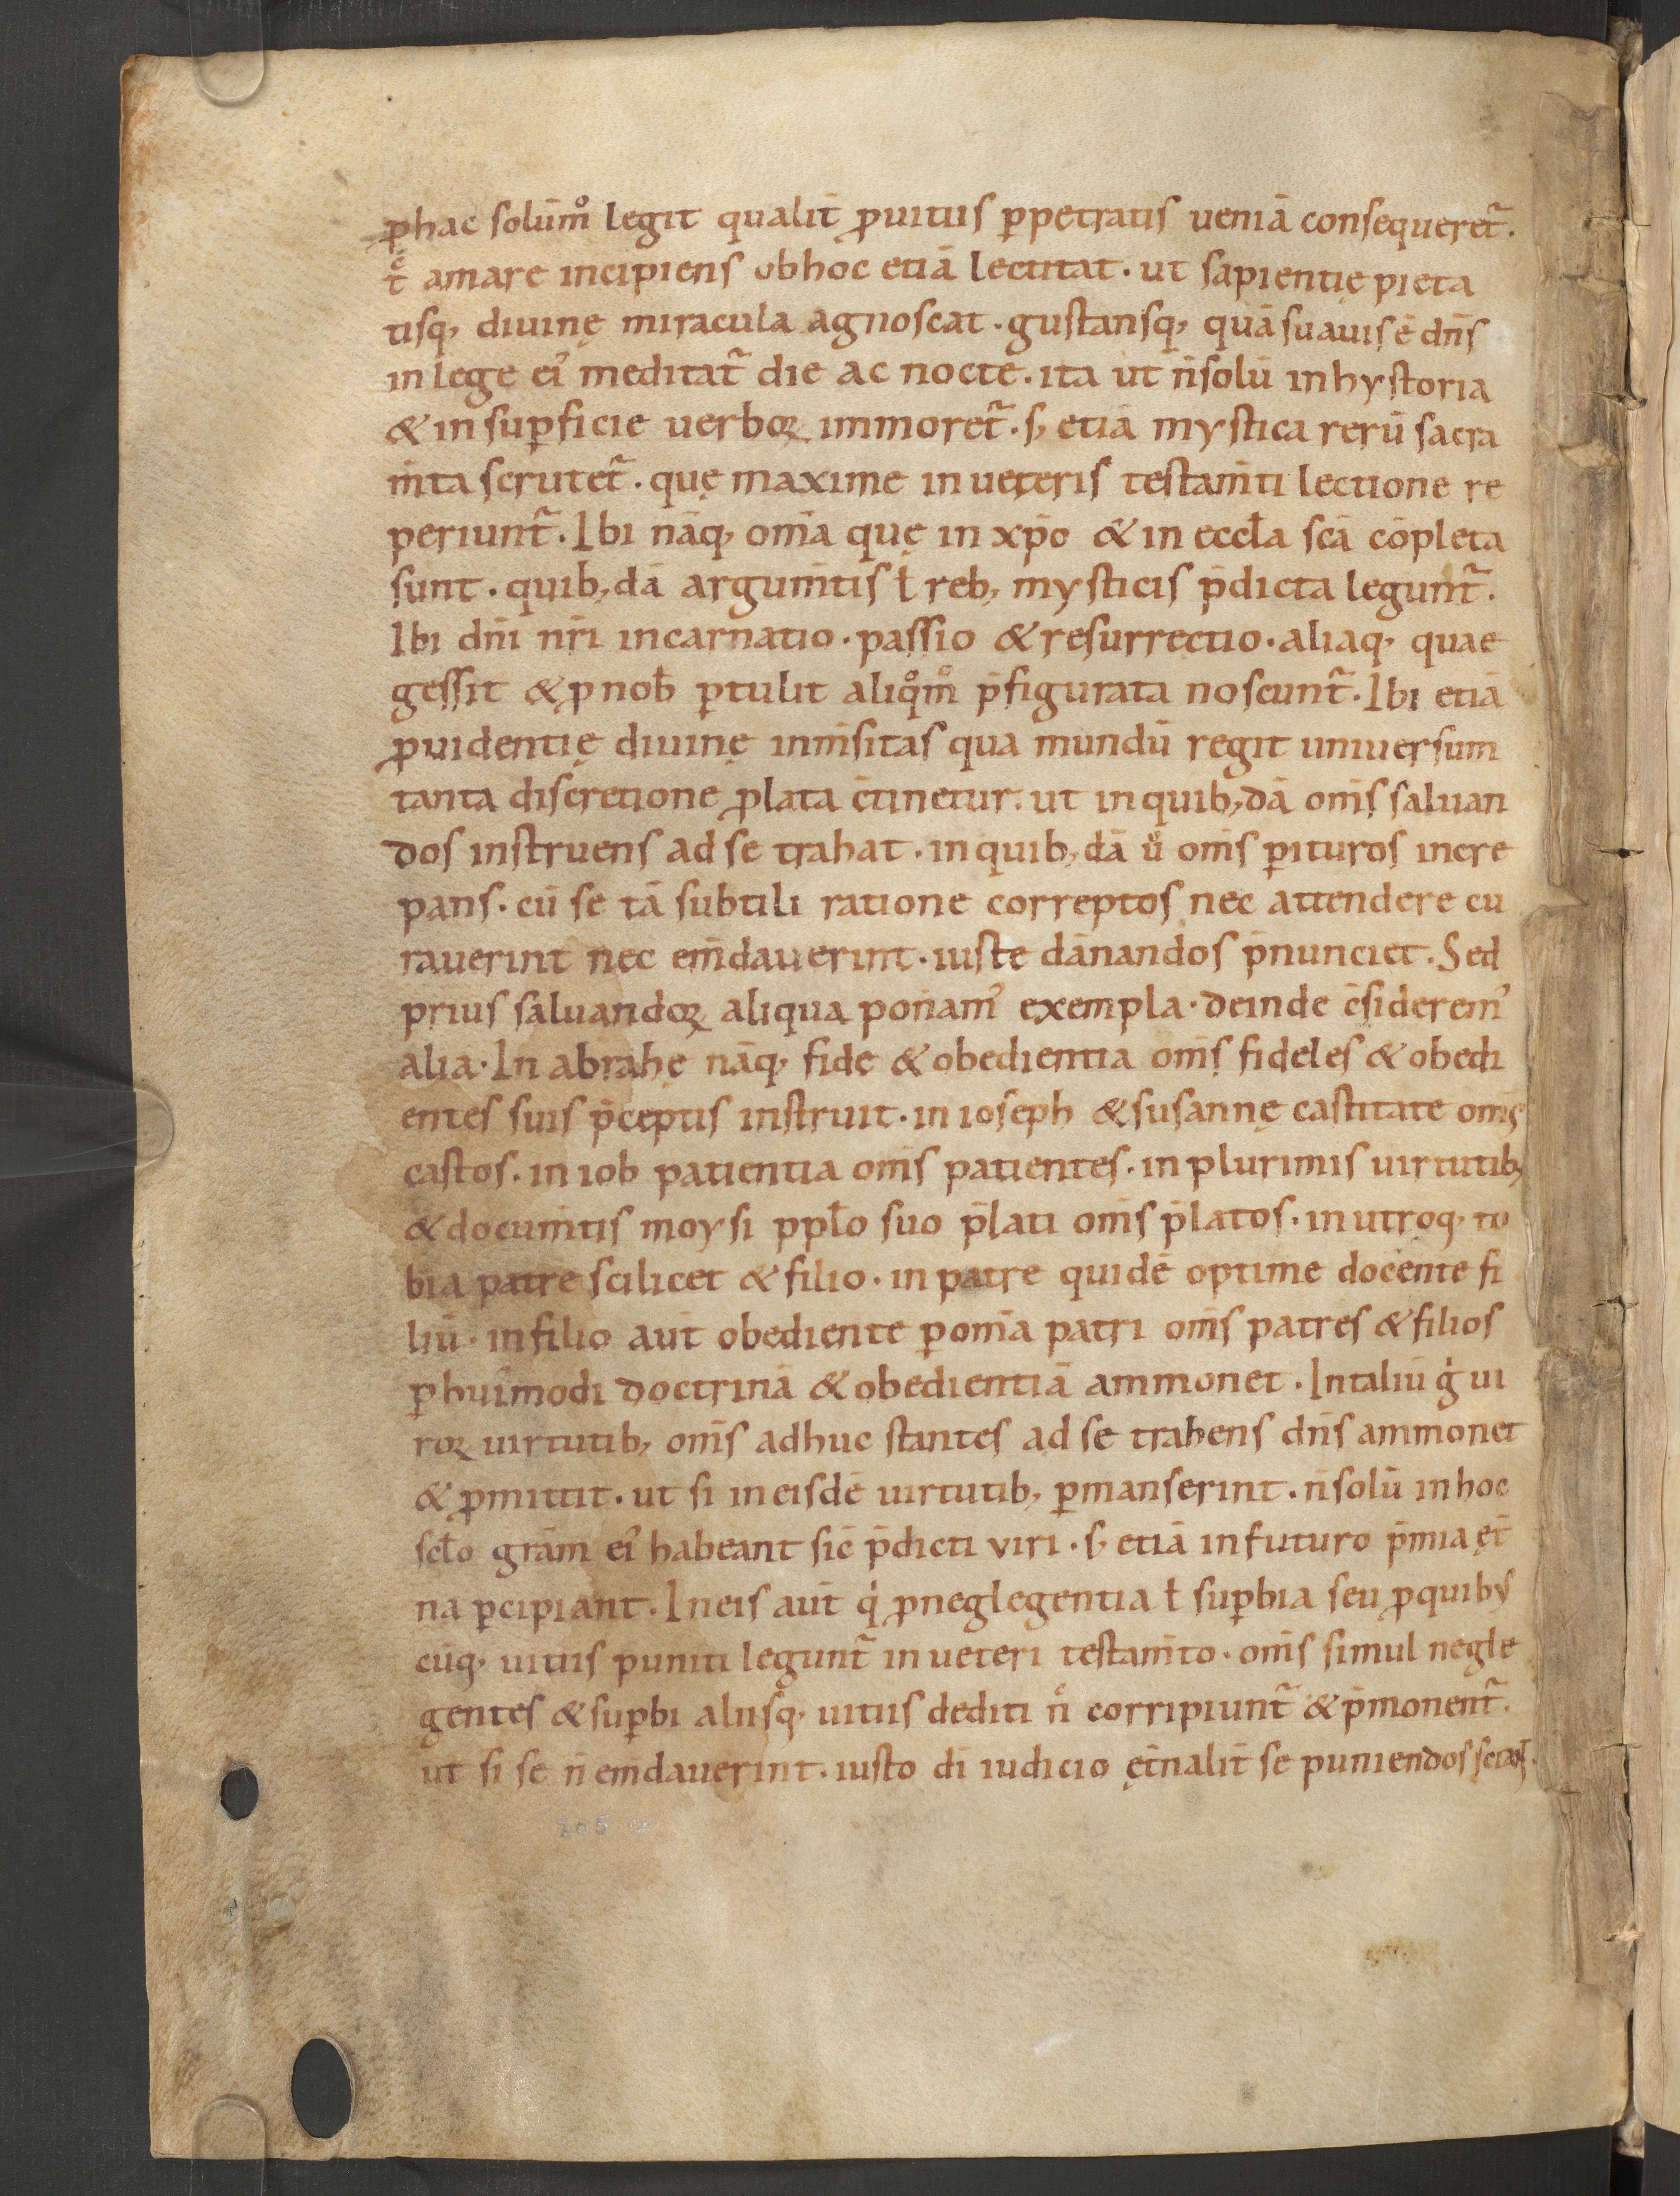 ꝓhac solūmͦ legit qualit̄ ꝓuitiis ꝑpetratis ueniā consequeret᷑.
t̄ amare incipiens obhoc etiā lectitat. ut sapientię pieta
tisq, diuinę miracula agnoscat. gustansq, quā suauis ē dn̄s
in lege ei᾽ meditat᷑ die ac nocte. ita ut n̄solū inhystoria
& insuꝑficie uerboꝝ immoret᷑. s, etiā mystica rerū sacra
m̄ta scrutet᷑. quę maxime inueteris testam̄ti lectione re
periunt᷑. Ibi nāq, om̄a quę in xp̄o & in eccƚa scā cōpleta
sunt. quib,dā argum̄tis ƚ reb, mysticis p̄dicta legunt᷑.
Ibi dn̄i nr̄i incarnatio. passio & resurrectio. aliaq, quae
gessit & ꝓ nob̄ ꝑtulit aliqͦmͦ p̄figurata noscunt᷑. Ibi etiā
ꝓuidentię diuinę inm̄sitas qua mundū regit uniuersum
tanta discretione ꝓlata c̄tinetur. ut inquib,dā om̄s saluan
dos instruens ad se trahat. inquib,dā uͦ om̄s ꝑituros incre
pans. cū se tā subtili ratione correptos nec attendere cu
rauerint nec em̄dauerint. iuste dānandos p̄nunciet. Sed
prius saluandoꝝ aliqua ponam᾽ exempla. deinde c̄siderem᾽
alia. In abrahę nāq, fide & obedientia om̄s fideles & obedi
entes suis p̄ceptis instruit. in ioseph & susannę castitate om̄s
castos. in iob patientia om̄s patientes. in plurimis uirtutib,
& docum̄tis moysi ppƚo suo p̄lati om̄s p̄latos. in utroq, to
bia patre scilicet & filio. in patre quidē optime docente fi
liū. infilio aut̄ obediente ꝑ om̄a patri om̄s patres & filios
ꝑ hui᾽modi doctrinā & obedientiā ammonet. Intaliū gͥ ui
roꝝ uirtutib, om̄s adhuc stantes ad se trahens dn̄s ammonet
& ꝓmittit. ut si in eisdē uirtutib, ꝑmanserint. n̄solū inhoc
scƚo grām ei᾽ habeant sic̄ p̄dicti viri. s, etiā infuturo p̄mia ęt̄
na ꝑcipiant. Ineis aut̄ qͥ ꝓneglegentia ƚ suꝑbia seu ꝓquibus
cūq, uitiis puniti legunt᷑ in ueteri testam̄to. om̄s simul negle
gentes & suꝑbi aliisq, uitiis dediti n̄ corripiunt᷑ & p̄monent᷑.
ut si se n̄ em̄dauerint. iusto dī iudicio ęt̄nalit̄ se puniendos sciant.